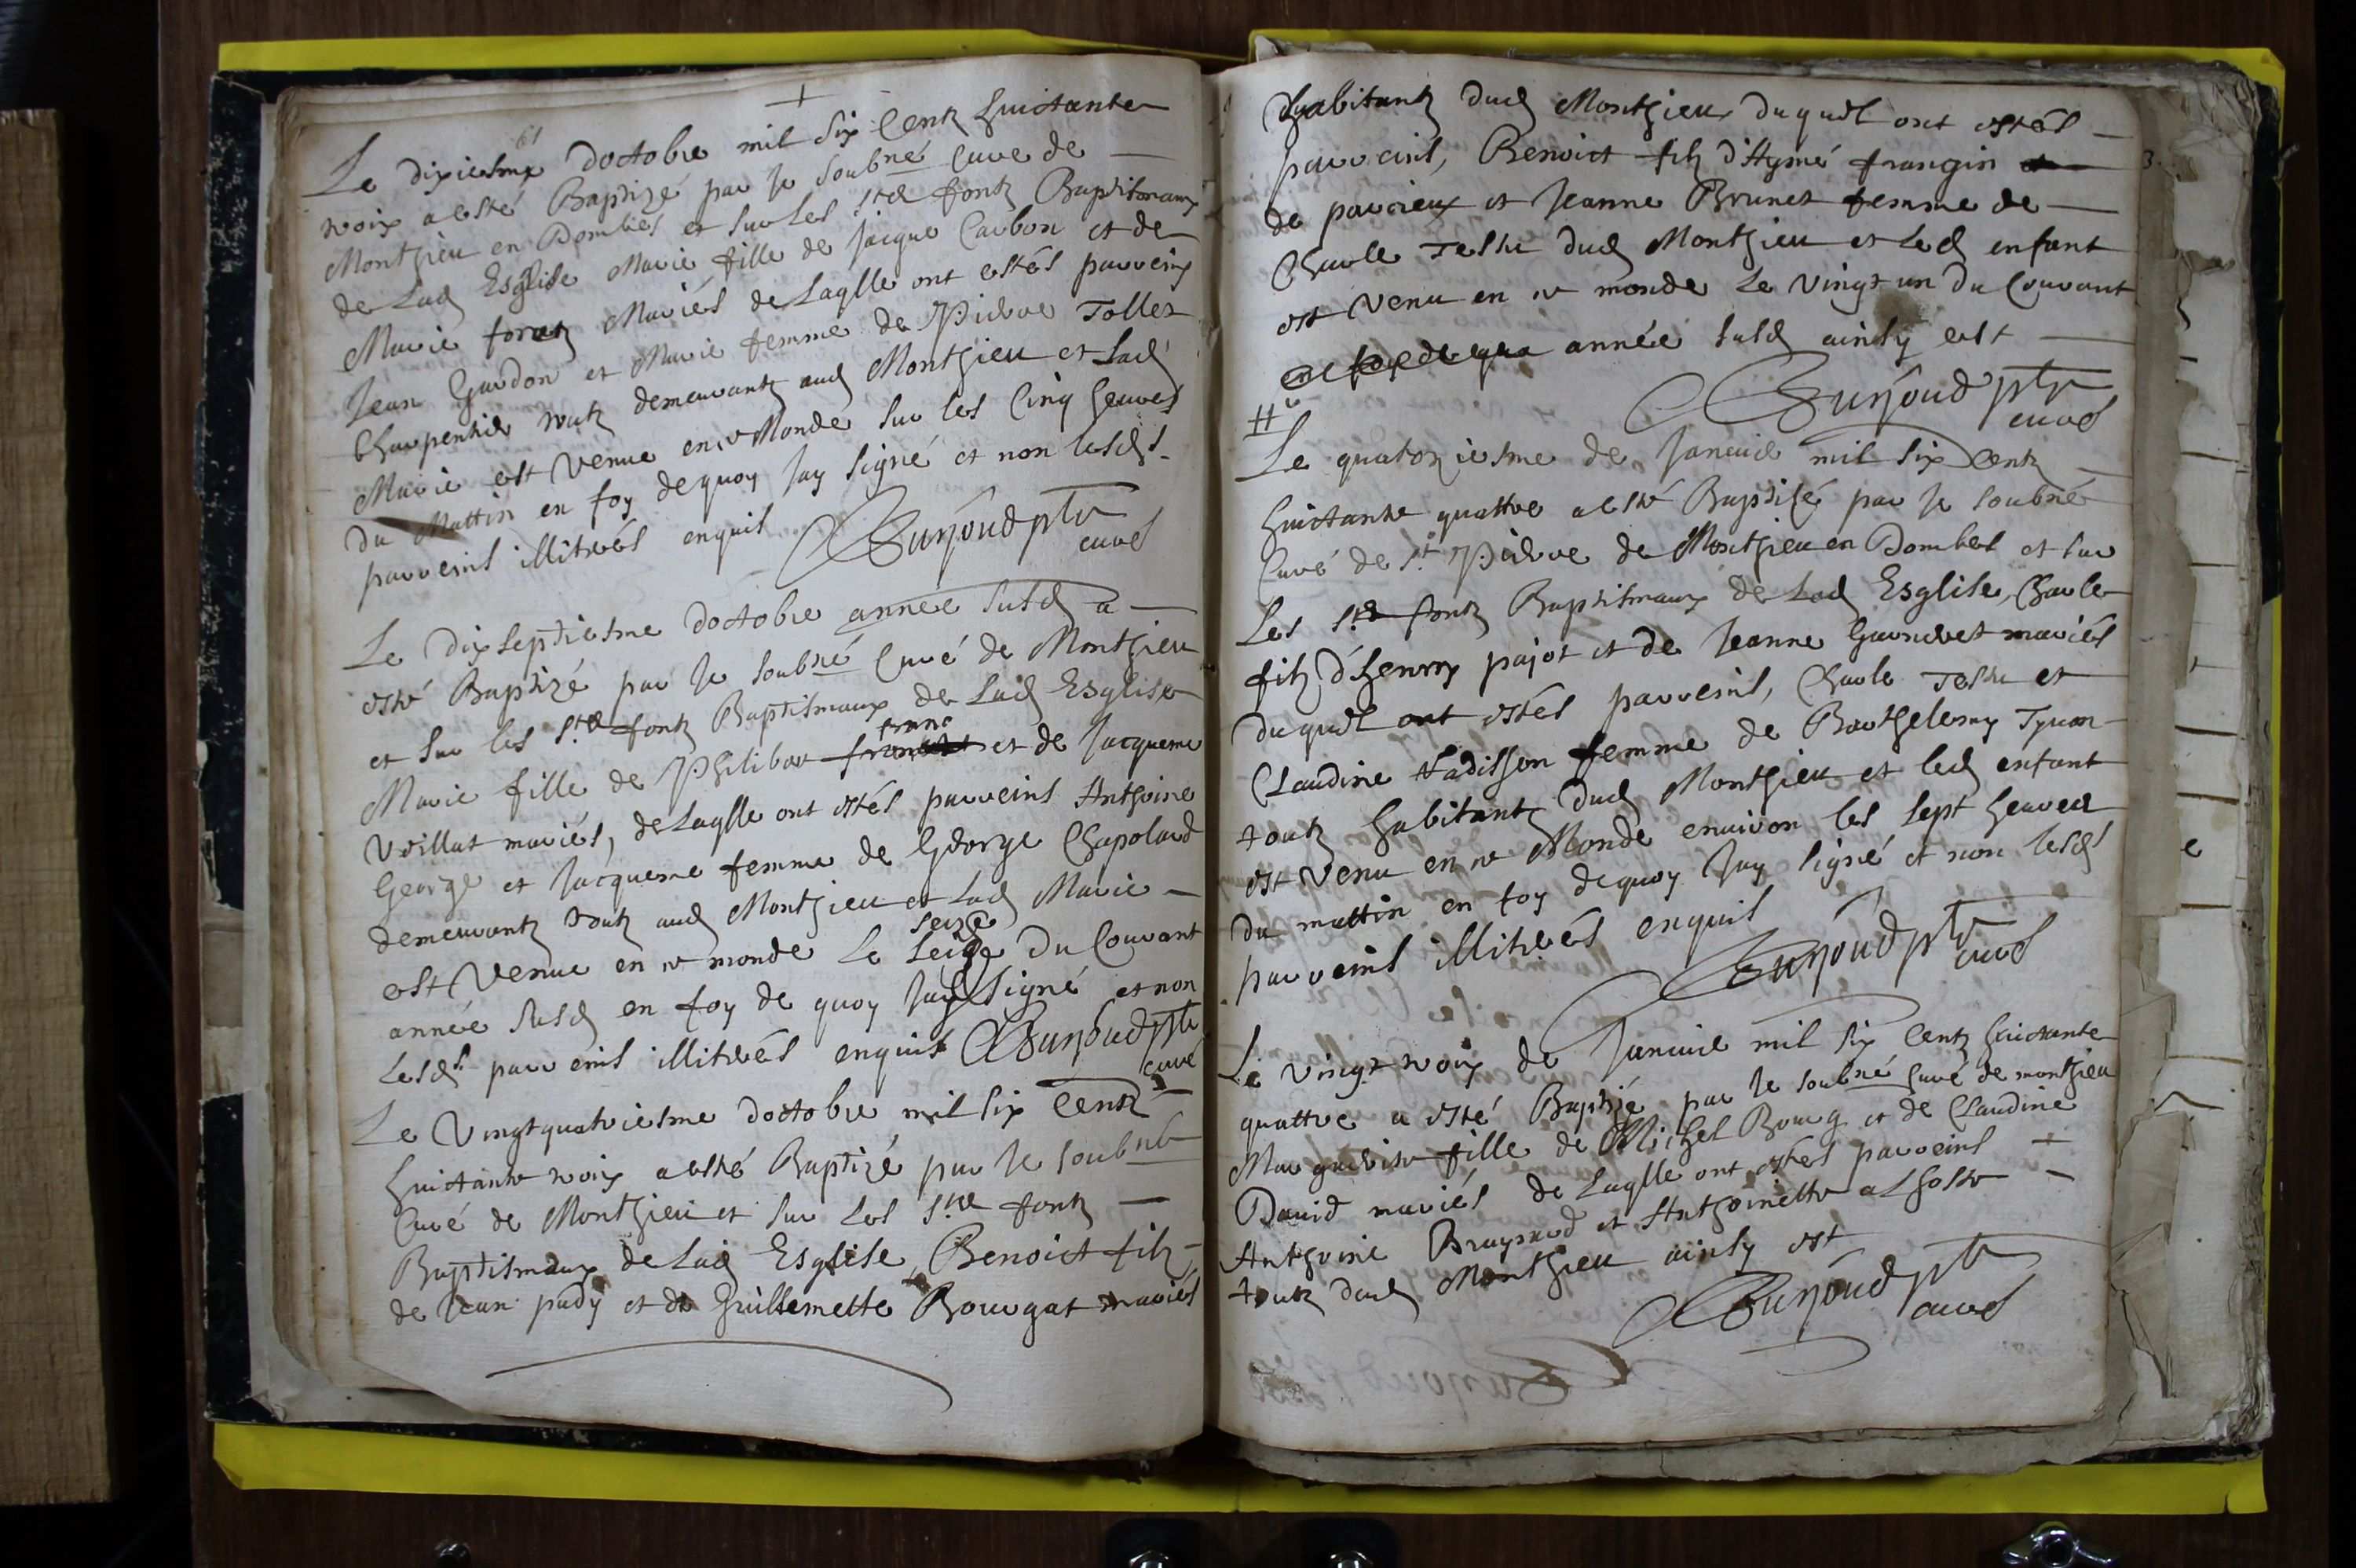 Le dixiesme doctobre mil six Centz huictante
troix a esté Baptizé par Je soubné Curé de
Monthieu en Dombes et sur les stes fontz Baptismaux
de Lad Esglise Marie fille de jacque Carbon et de
Marie foretz Mariés de Laqlle ont estés parreins
Jean Gardon et Marie femme de Pierre Tollet
Charpentier toutz demeurantz aud Monthieu et Lad
Marie est Venue en ce Monde sur les Cinq heures
du Mattin en foy dequoy Jay signé et non lesds
parreins illiterés enquis
Burjoud ptre
curé
Le Dixseptiesme doctobre année susd a
esté Baptizé par Je soubné Curé de Monthieu
et sur les stes fontz Baptismaux de Lad Esglise
Marie fille de Philibert et de Jacqueme
Veillat mariés, de Laqlle ont estés parreins Anthoine
George et Jacqueme femme de George Chapolard
demeurantz toutz aud Monthieu et Lad Marie
seize
est Venue en ce monde Le seize du Courant
année susd en foy de quoy Jay signé et non
Lesds parreins illiterés enquis Burjoud ptre
curé
Le Vingtquatriesme doctobre mil six Centz
huictante troix a esté Baptizé par Je soubné
Curé de Monthieu et sur Les stes fontz
Baptismaux de Lad Esglise, Benoict filz
de Jean pady et de Guillemette Bourgat mariés
habitantz dud Monthieu duquel ont estés
parreins, Benoict filz d'Aymé frangin
de parcieux et Jeanne Brunet femme de
Charle Teste dud Monthieu et Led enfant
est Venu en ce monde Le Vingt un du Courant
année susd ainsy est
Burjoud ptre
curé
Le quatorziesme de Janvier mil six Centz
huictante quattre a esté Baptisé par Je soubné
Curé de st Pierre de Monthieu en Dombes et sur
Les stes fontz Baptismaux de Lad Esglise, Charle
filz d'henry pajot et de Jeanne Garnevet mariés
duquel ont estés parreins, Charle Teste et
Claudine Tadisson femme de Barthelemy Tynan
toutz habitantz dud Monthieu et led enfant
est Venu en ce Monde environ les sept heures
du mattin en foy dequoy Jay signé et non lesds
parreins illiterés enquis
Burjoud ptre
curé
Le vingt troix de Janvier mil six Centz huictante
quattre a esté Baptizé par Je soubné Curé de monthieu
Marguerite fille de Michel Bourg et de Claudine
David mariés de Laqlle ont estés parreins
Anthoine et Anthoinette
toutz dud Monthieu ainsy est
Burjoud ptre
curé